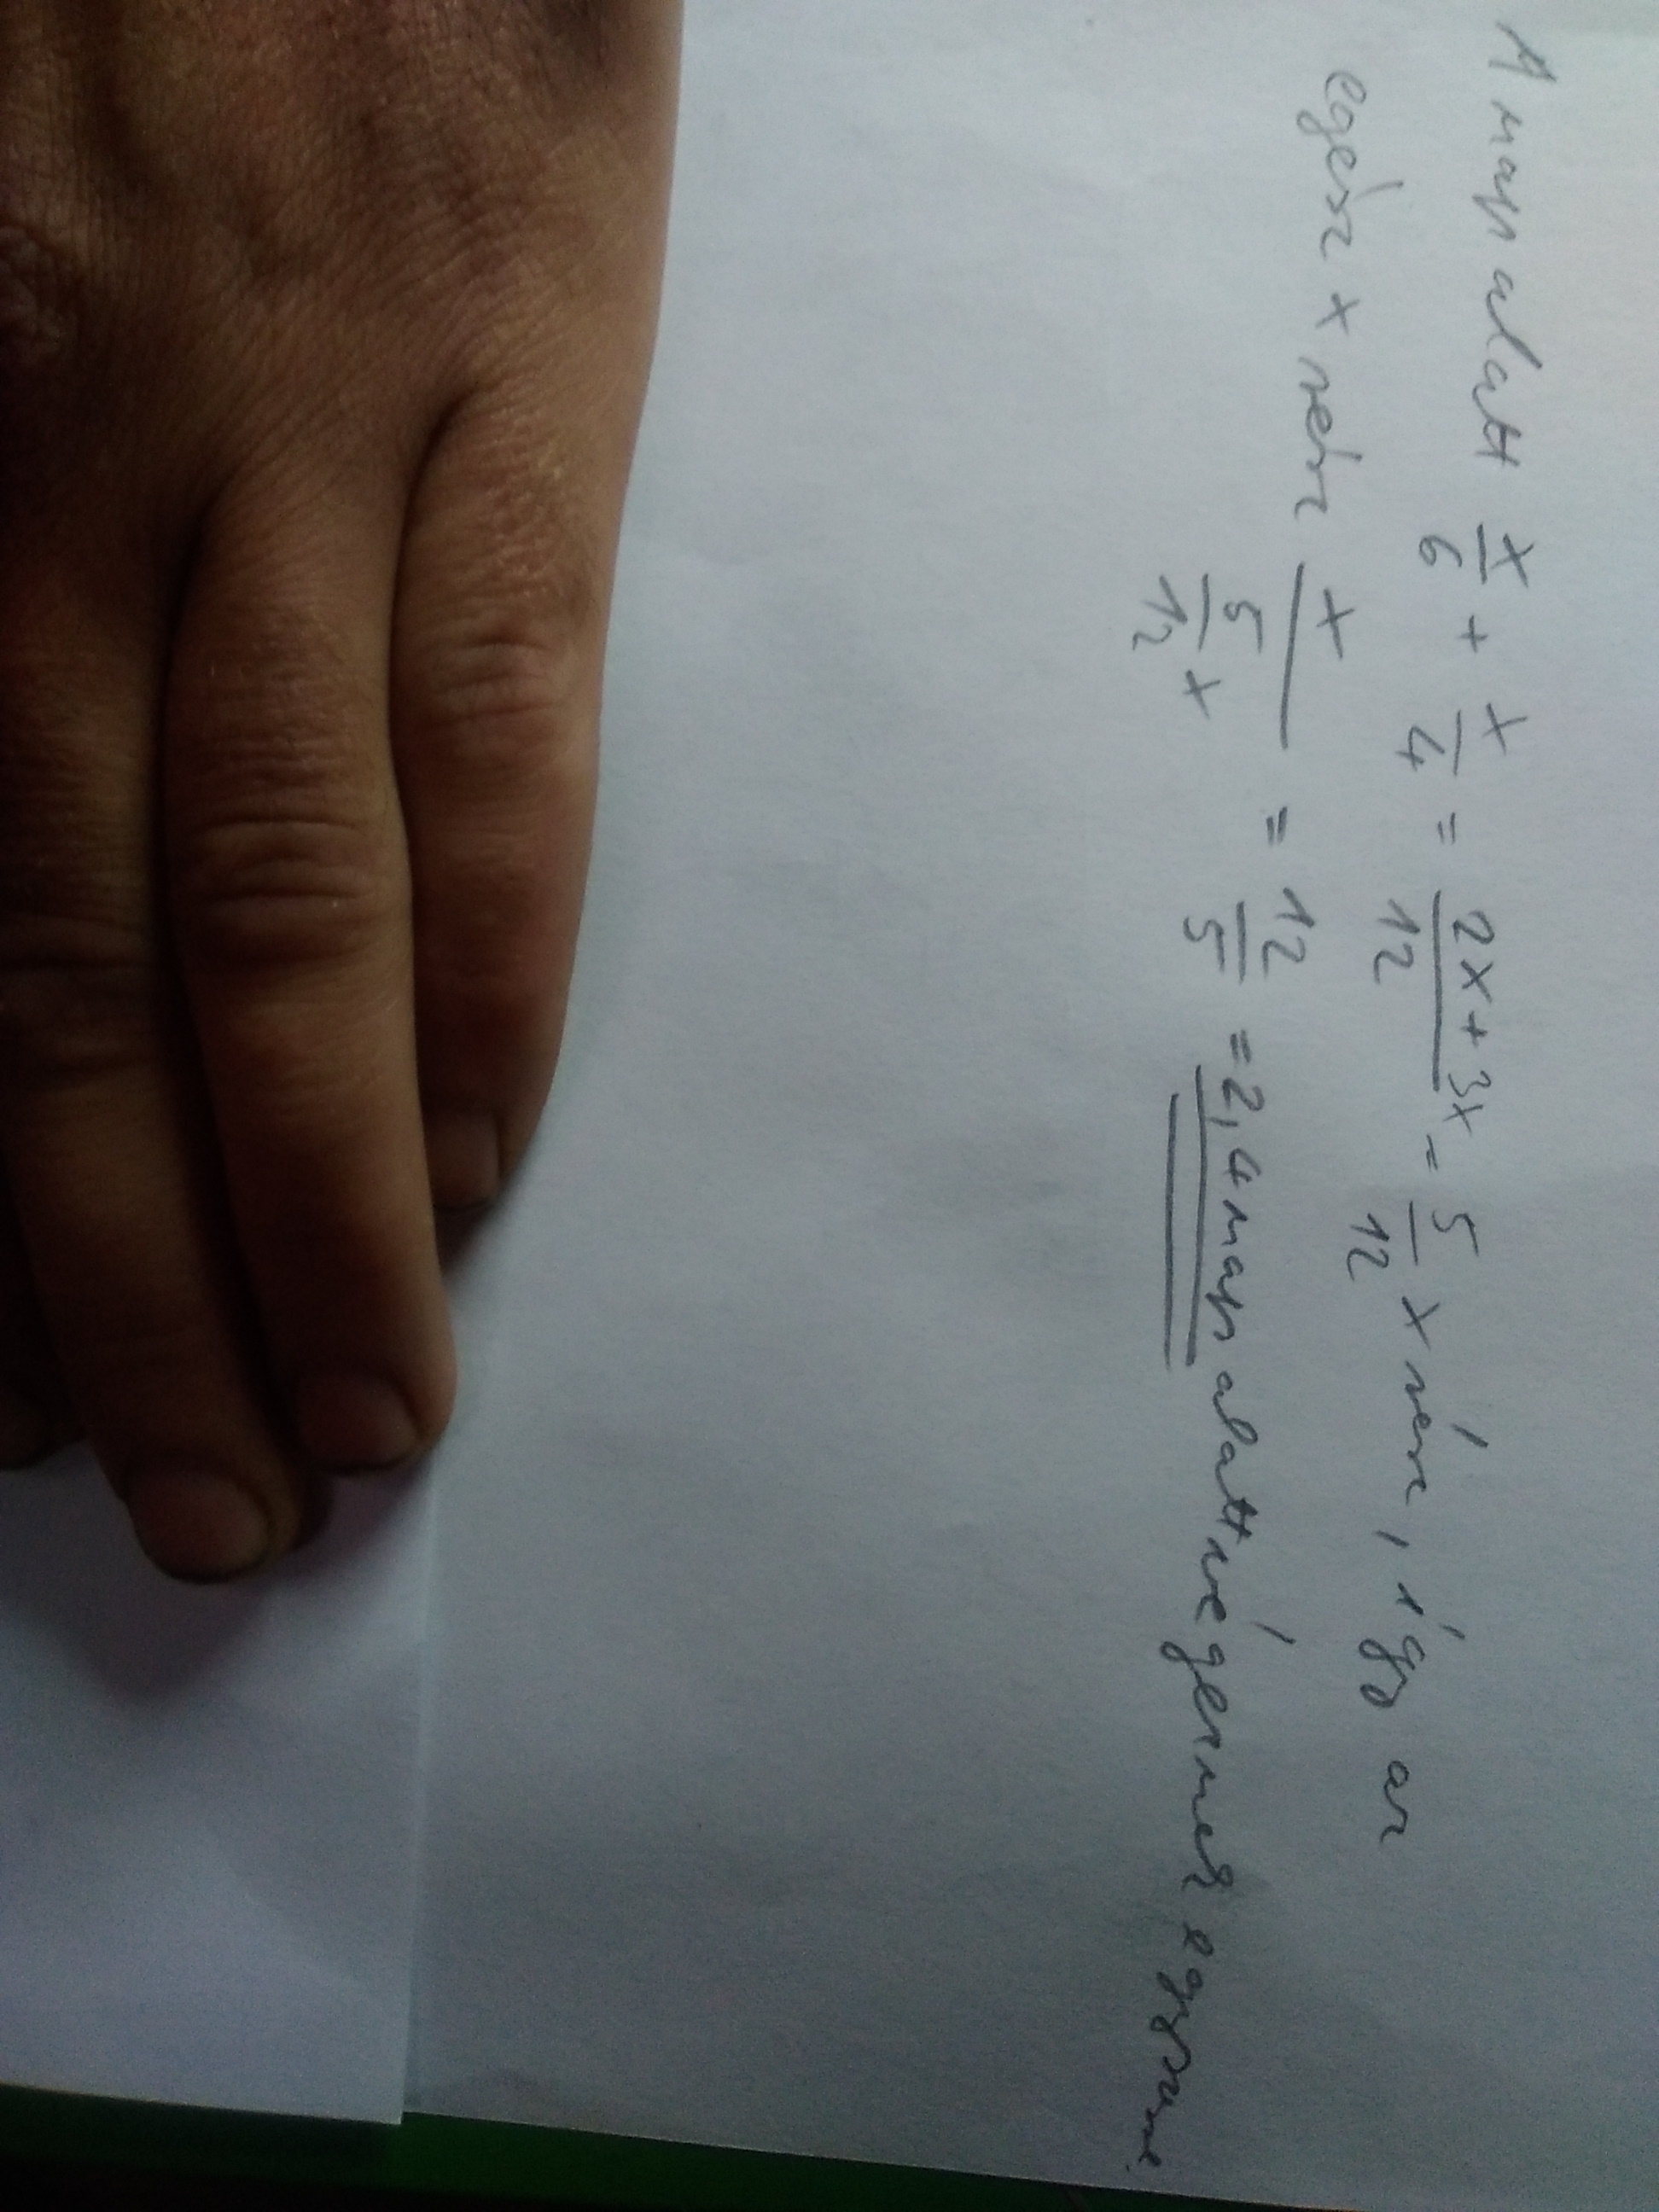 1 nap alatt x/6 + x/4 = 2x+3x/12 = 5/12 x rész, így az
egész x rész x/(5/12 x) = 12/5 = 2,4 nap alatt végeznek együtt.